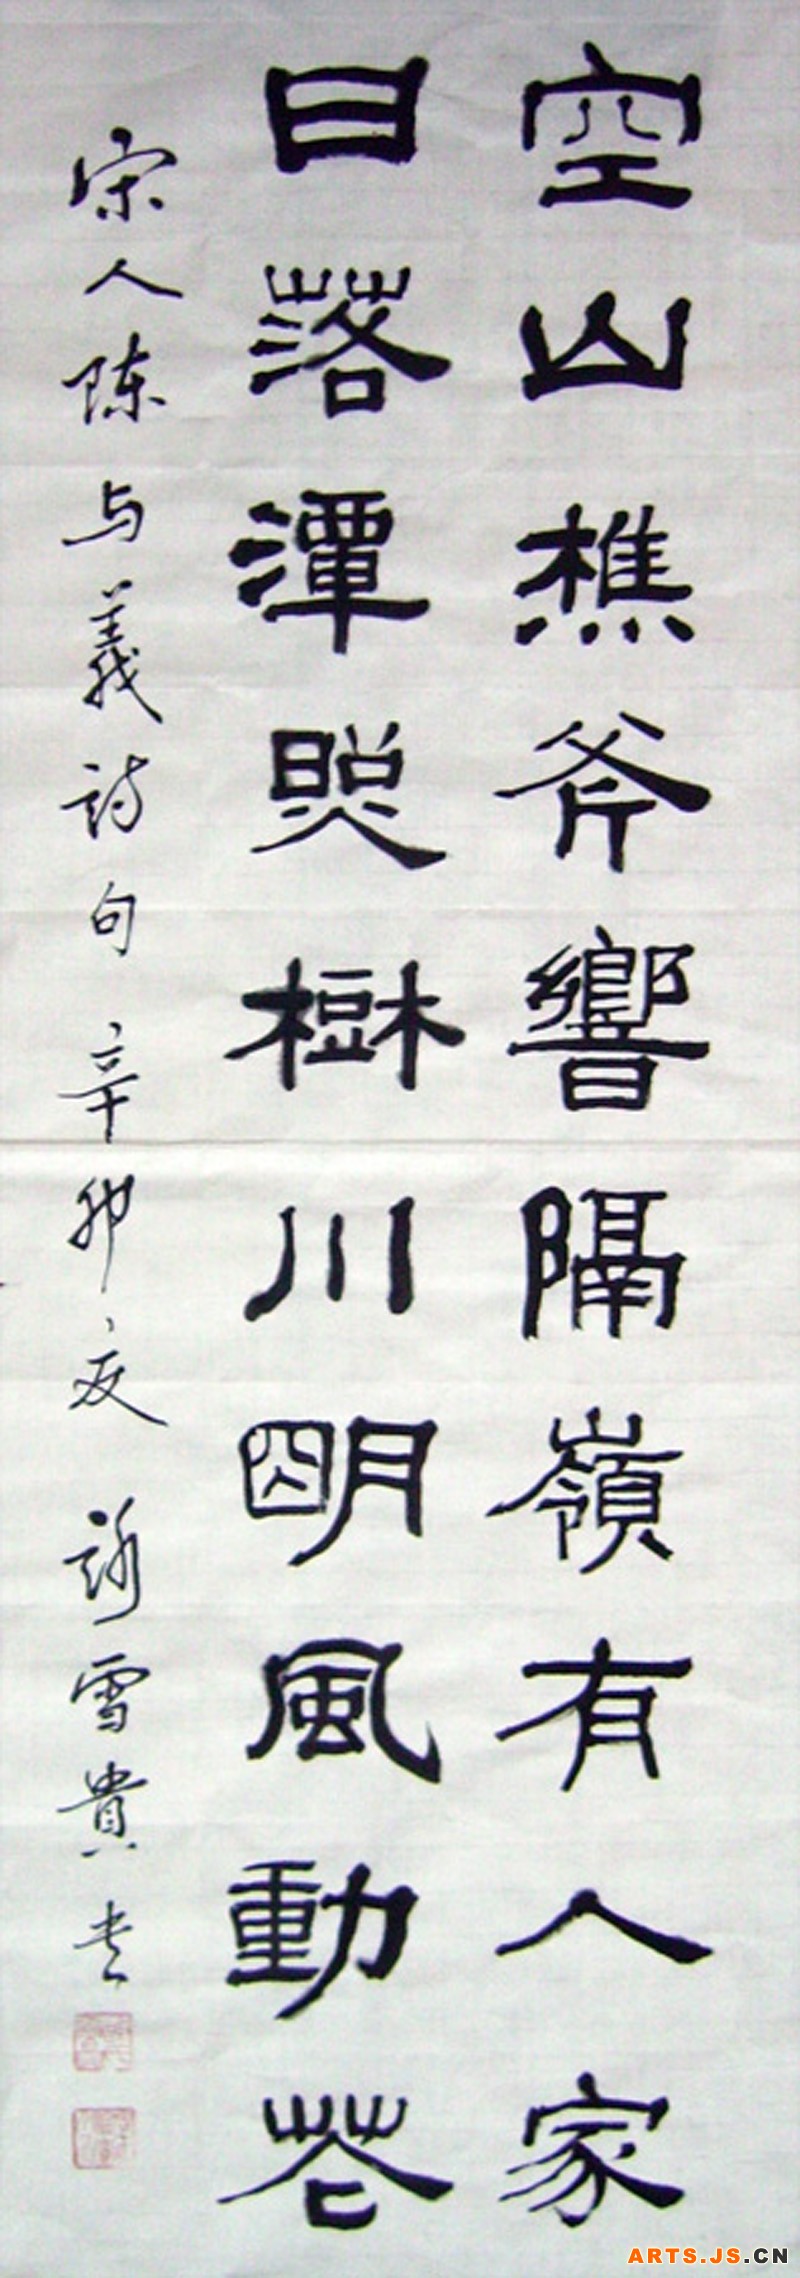 空山樵斧響隔嶺有人家
日落潭照樹川明風動花
宋人陈与義诗句 辛卯夏 雪貴书
ARTS.JS.CN